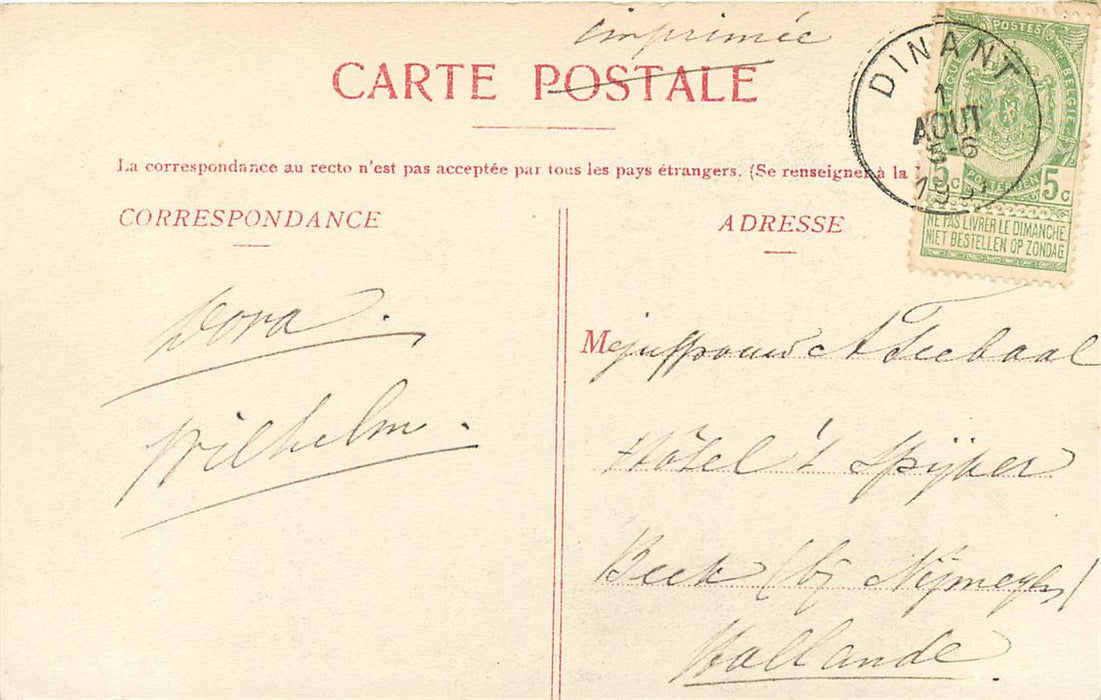 imprimée
CARTE POSTALE
La correspondance au recto n'est pas acceptée par tous les pays étrangers. (Se renseigner à la
DINANT
1
AOUT
5-6
19
POSTES BELGIQUE
5c 5c
POSTERIJEN
NE PAS LIVRER LE DIMANCHE
NIET BESTELLEN OP ZONDAG
CORRESPONDANCE
ADRESSE
Dora.
Wilhelm.
Mejuffrouw A Teebaal
Hôtel 't Spijker
Beek (bij Nijmegen)
Hollande